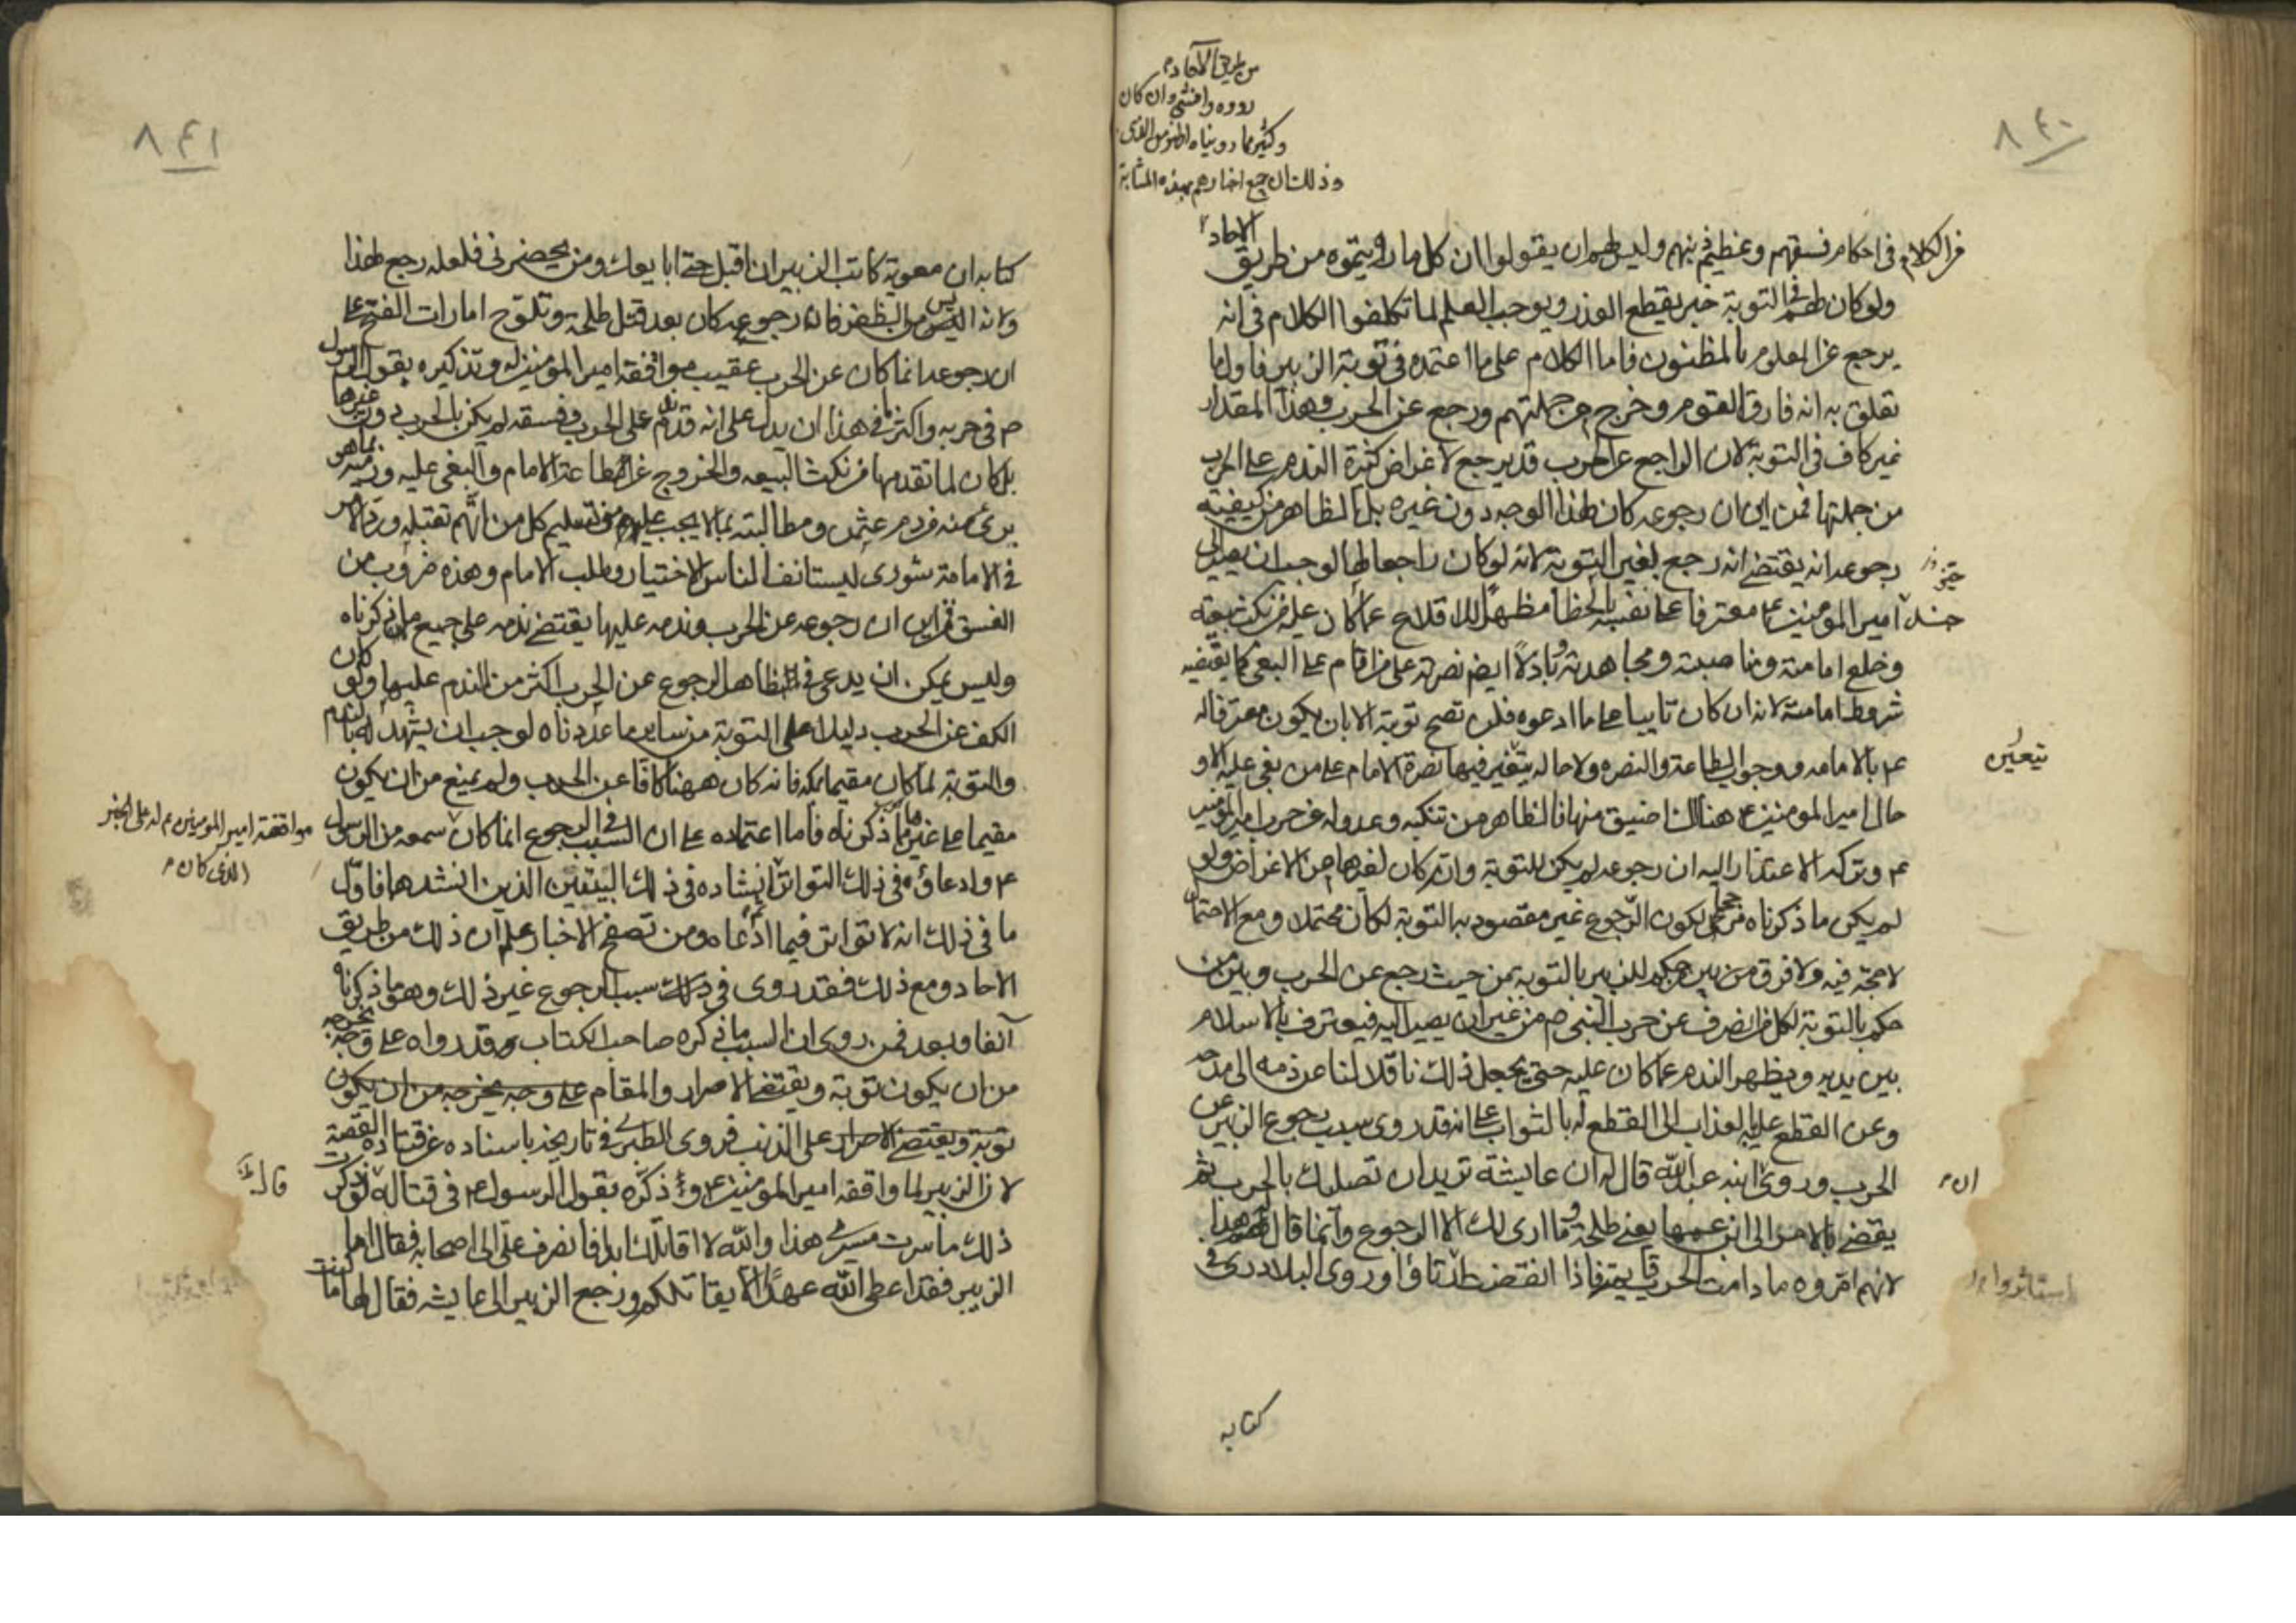 ٨٤٠
من طريق الآحاد
رووه وافشي وان كان
وكثير مما رويناه اظهر من الذى
وذلك ان جميع اخبارهم بهذه المثابة
من الكلام فى احكام فسقهم وعظيم ذنبهم وليس لهم ان يقولوا ان كل ما رويتموه من طريق الآحاد
ولو كان لهم فى التوبة خبر يقطع العذر ويوجب العلم لما تكلفوا الكلام فى انه
يرجع عن المعلوم بالمظنون فاما الكلام على ما اعتمده فى توبة الزبير فاول ما
تعلق به انه فارق القوم وخرج من جملتهم ورجع عن الحرب وهذا المقدار
غير كاف فى التوبة لان الراجع عن الحرب قد يرجع لاغراض كثيرة الندم على الحرب
من جملتها فمن اين ان رجوعه كان لهذا الوجه دون غيره بل الظاهر من كيفية
رجوعه انه يقتضى انه رجع لغير التوبة لانه لو كان راجعا لها لوجب ان يصير الى
امير المومنين ع معترفا على نفسه بالخطا مظهرا للاقلاع عما كان عليه من نكث بيعته
وخلع امامته ومناصبته ومجاهدته وباذلا ايضا نصرته على من اقام على البغى كما يقتضيه
شروط امامته لانه ان كان تايبا على ما ادعوه فلن تصح توبته الا بان يكون معترفا له
ع بالامامه ووجوب الطاعة والنصره ولا حاله يتعين فيها نصرة الامام على من بغى عليه الا و
يتعين
حال امير المومنين ع هناك اضيق منها فالظاهر من تنكبه وعدوله عن حرب امير المومنين
ع وتركه الاعتذار اليه ان رجوعه لم يكن للتوبة وانه كان لغيرها من الاغراض ولو
لم يكن ما ذكرناه مرجحا لكون الرجوع غير مقصود به التوبة لكان محتملا ومع الاحتمال
لا حجة فيه ولا فرق بين من حكم للزبير بالتوبة من حيث رجع عن الحرب وبين من
حكم بالتوبة لكل من انصرف عن حرب النبى ص من غير ان يصير اليه فيعترف بالاسلام
بين يديه ويظهر الندم عما كان عليه حتى يجعل ذلك ناقلا لنا عن ذمه الى مدحه
وعن القطع عليه بالعذاب الى القطع له بالثواب على انه قد روى سبب رجوع الزبير عن
الحرب وروى ابنه عبد الله قال له ان عايشة تريد ان تصليك بالحرب ثم
ان
يقضى بالامر الى ابن عمها يعنى طلحة وما ارى لك الا الرجوع وانما قال هذا
لانهم امروه ما دامت الحرب قايمة فاذا انقضت استاثروا وروى البلاذرى فى
استاثروا
كتابه
٨٤١
كتابه ان معوية كاتب الزبير ان اقبل حتى ابايعك ومن يحضرنى فلعله رجع لهذا
وانه اليس من الظفر فان رجوعه كان بعد قتل طلحة وتلوح امارات الفتح على
ان رجوعه انما كان عن الحرب عقيب مواقفة امير المومنين له وتذكيره بقول الرسول
ص فى حربه واكثر ما فى هذا ان يدل على انه قد ندم على الحرب وفسقه لم يكن بالحرب دون غيرها
بل كان لما تقدمها من نكث البيعه والخروج عن طاعة الامام والبغى عليه ورميه بما هو
برى منه من دم عثمن ومطالبته بما لا يجب عليه من تسليم كل من اتهم بقتله ورد الامر
فى الامامة شورى ليستانف الناس الاختيار وطلب الامام وهذه ضروب من
الفسق فمن اين ان رجوعه عن الحرب وندمه عليها يقتضى ندمه على جميع ما ذكرناه
وليس يمكن ان يدعى فى الظاهر الرجوع عن الحرب اكثر من الندم عليها ولو كان
الكف عن الحرب دليلا على التوبة من ساير ما عددناه لوجب ان يشهد له بالندم
والتوبة لما كان مقيما بمكة فانه كان ههنا كافا عن الحرب ولم يمنع من ان يكون
مقيما على غيرها مما ذكرناه فاما اعتماده على ان السبب فى الرجوع انما كان سمعه من الرسول
مواقفة امير المومنين ع له على الخبر
الذى كان
ع وادعاؤه فى ذلك التواتر وانشاده فى ذلك البيتين الذين انشدهما فاول
ما فى ذلك انه لا تواتر فيما ادعاه ومن تصفح الاخبار علم ان ذلك من طريق
الاحاد ومع ذلك فقد روى فى ذلك سبب الرجوع غير ذلك وهو ما ذكرناه
آنفا وبعد فمن روى ان السبب ما ذكره صاحب الكتاب قد رواه على وجه يخرجه
من ان يكون توبة ويقتضى الاصرار والمقام على وجه يخرجه من ان يكون
توبة ويقتضى الاصرار على الذنب فروى الطبرى فى تاريخه باسناده عن قتاده القصة
قال
لان الزبير لما واقفه امير المومنين ع وذكره بقول الرسول ع فى قتاله لو ذكرت
ذلك ما سرت مسيرى هذا والله لا اقاتلك ابدا فانصرف على الى اصحابه فقال اما
الزبير فقد اعطى الله عهدا الا يقاتلكم ورجع الزبير الى عايشه فقال لها ما كنت